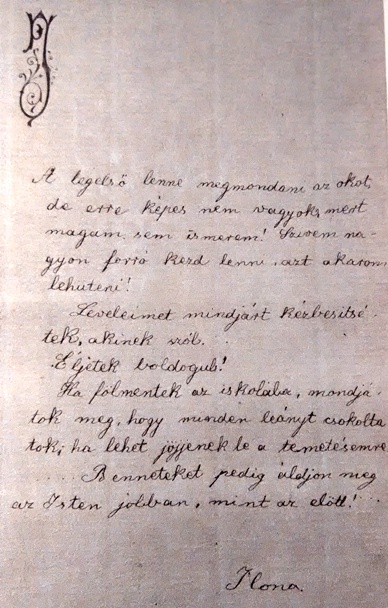 A legelső lenne megmondani az okot,
de erre képes nem vagyok, mert
magam sem ismerem! Szivem na-
gyon forró kezd lenni, azt akarom
lehuteni!
Leveleimet mindjárt kézbesitsé-
tek, akinek szól.
Éljetek boldogub!
Ha fölmentek az iskolába, mondjá-
tok meg, hogy minden leányt csokolta
tok; ha lehet jöjjenek le a temetésemre
..... Benneteket pedig áldjon meg
az Isten jobban, mint az előtt!
Ilona.